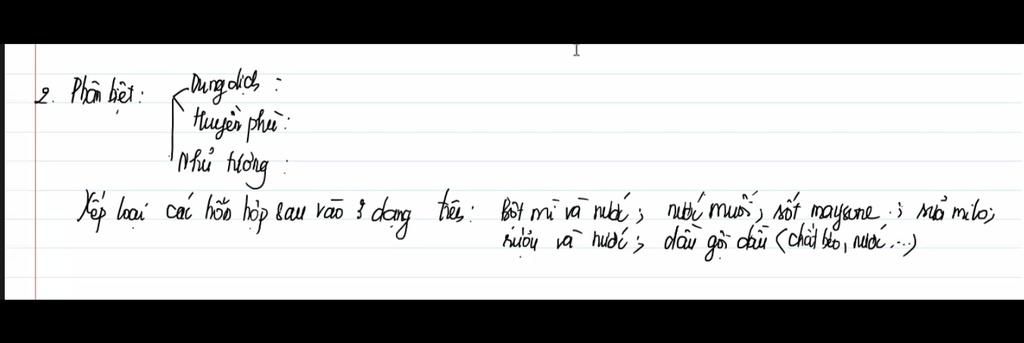 2. Phân biệt: Dung dịch :
Huyền phù :
Nhũ tương :
Xếp loại các hỗn hợp sau vào 3 dạng trên: Bột mì và nước; nước muối; sốt mayone; sữa milo;
rượu và nước; dầu gội đầu (chất béo, nước...)